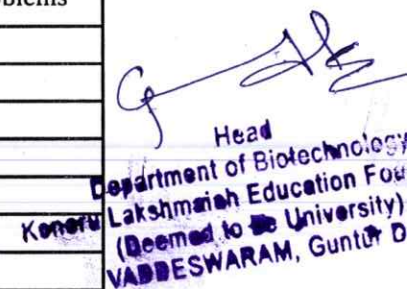 oblems
Head
Department of Biotechnology
Koneru Lakshmaiah Education Fou
(Deemed to be University)
VADDESWARAM, Guntur D